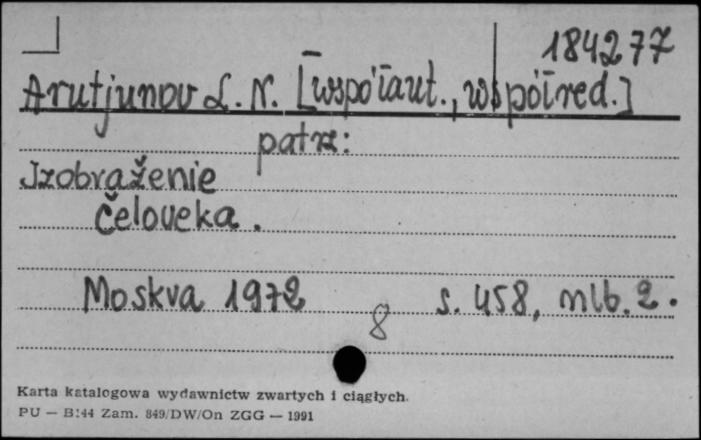 184277
Arutjunov L. N. [współaut., współred.]
patrz:
Izobraženie
Čeloveka.
Moskva 1972 s. 458, nlb. 2.
8
Karta katalogowa wydawnictw zwartych i ciągłych.
PU — B144 Zam. 849/DW/On ZGG — 1991